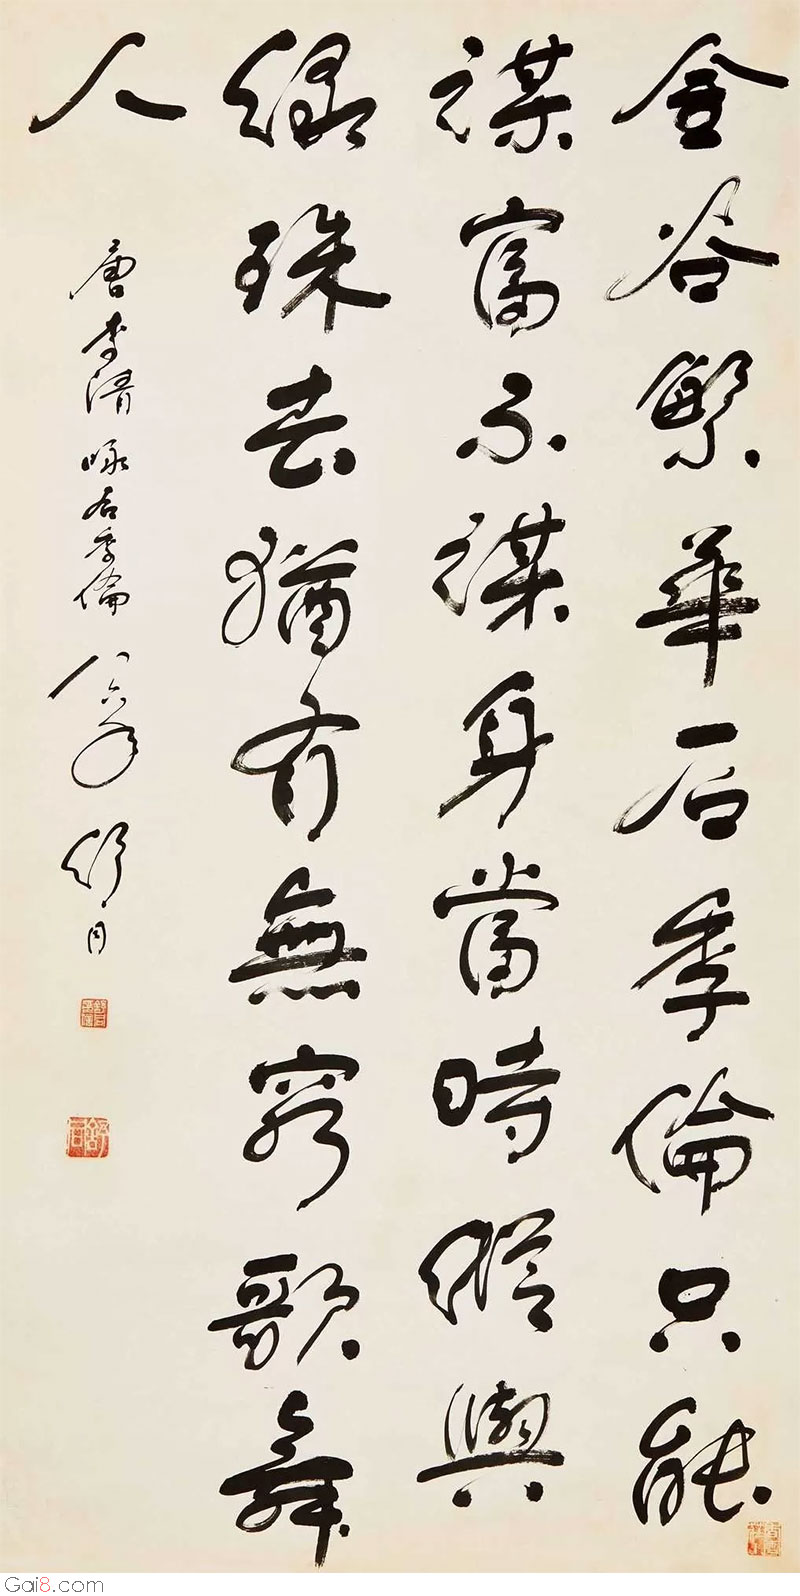 金谷繁華石季倫只能
謀富不謀身當時縱與
綠珠去猶有無窮歌舞
人
唐李清詠石季倫 八六年 舒同
舒同
Gai8.com